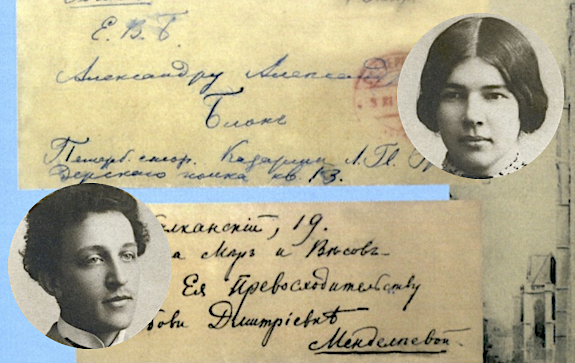 Е. В. Б.
Александру Алексан
Блокъ
Петерб. стор. Казармы Л. Гв. Гр
дерскаго полка кв. 13.
лханскій, 19.
а Мѣръ и Вѣсовъ
Ея Превосходительству
бови Дмитріевнѣ
Менделѣевой